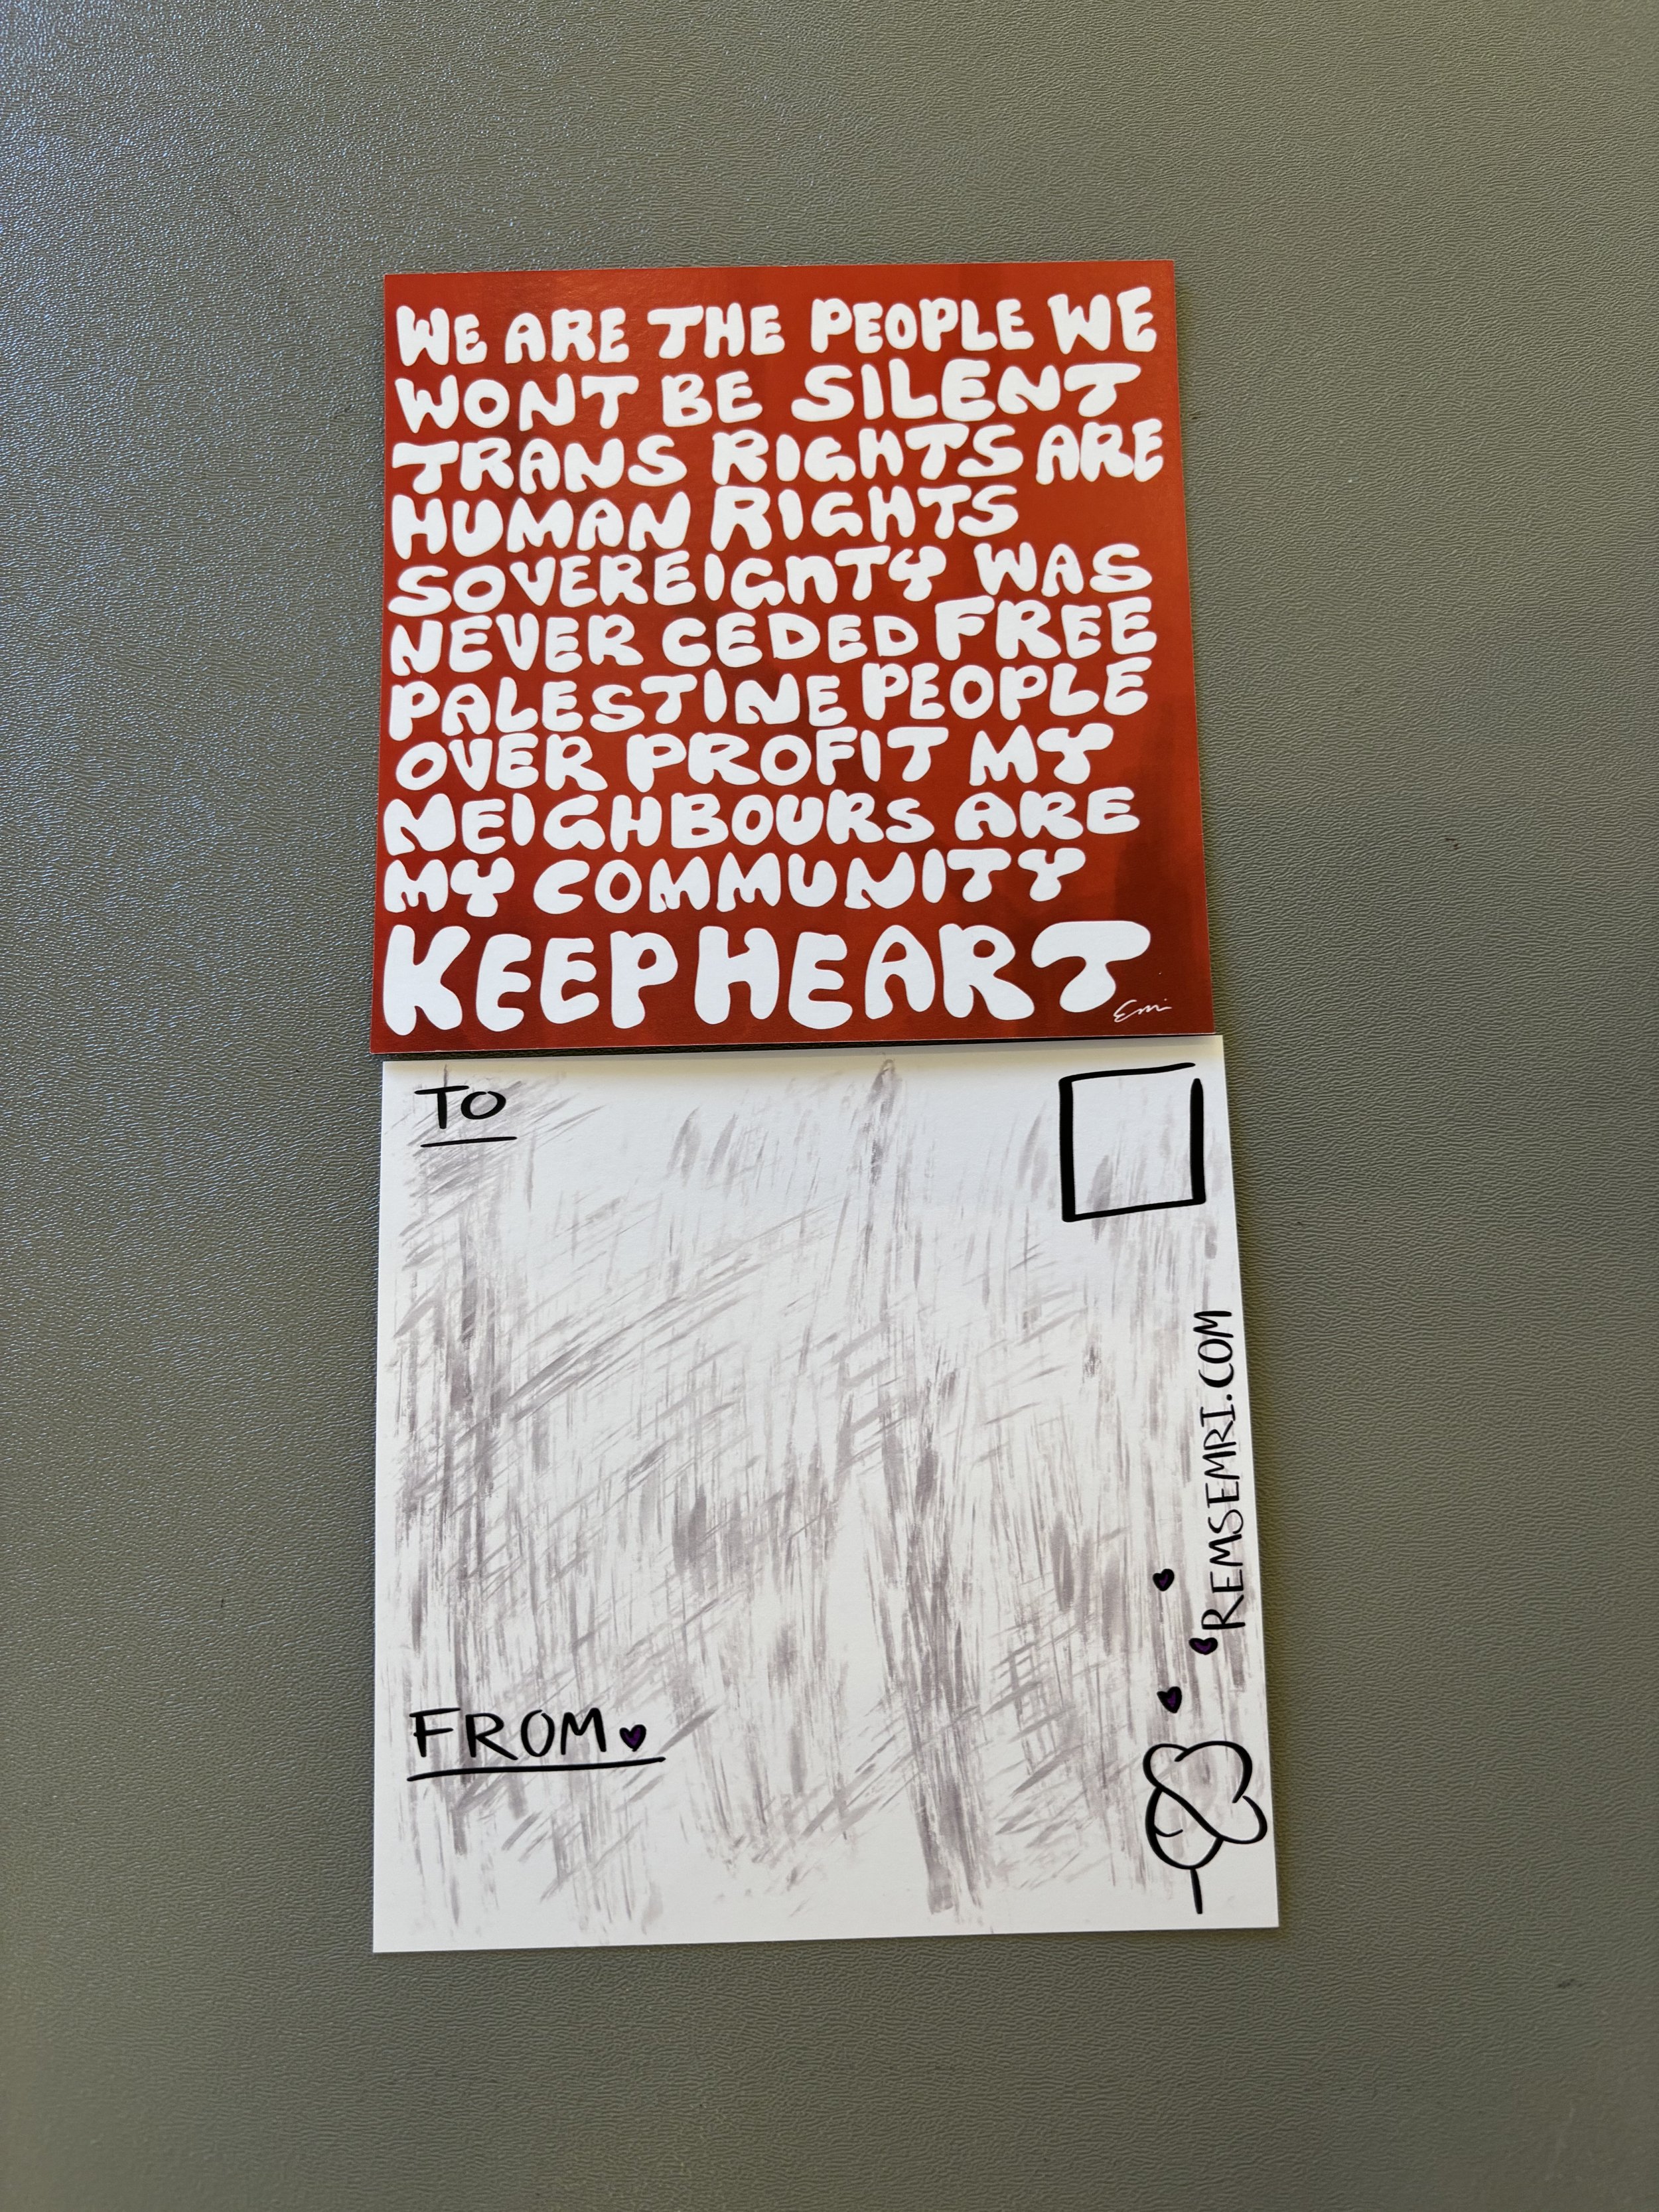 WE ARE THE PEOPLE WE
WONT BE SILENT
TRANS RIGHTS ARE
HUMAN RIGHTS
SOVEREIGNTY WAS
NEVER CEDED FREE
PALESTINE PEOPLE
OVER PROFIT MY
NEIGHBOURS ARE
MY COMMUNITY
KEEP HEART
Emi
TO
REMSEMRI.COM
FROM